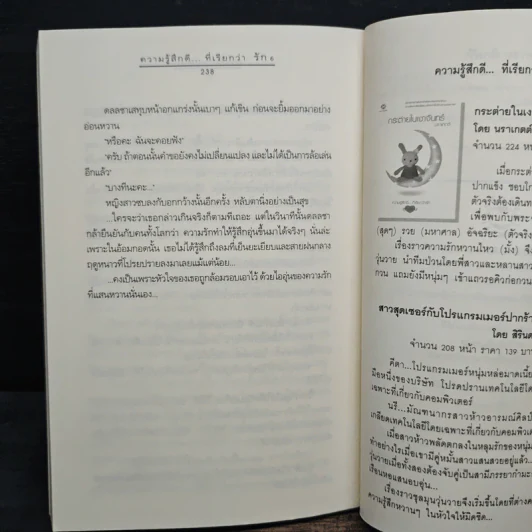 ความรู้สึกดี... ที่เรียกว่า รัก ๕
238
ดลลชาเสทุบหน้าอกแกร่งนั้นเบาๆ แก้เขิน ก่อนจะยิ้มออกมาอย่าง
อ่อนหวาน
'หรือคะ ฉันจะคอยฟัง'
'ครับ ถ้าตอนนั้นคำขอยังคงไม่เปลี่ยนแปลง และไม่ได้เป็นการล้อเล่น
อีกแล้ว'
'บางทีนะคะ...'
หญิงสาวซบลงกับอกกว้างนั้นอีกครั้ง หลับตานิ่งอย่างเป็นสุข
...ใครจะว่าเธอกล่าวเกินจริงก็ตามทีเถอะ แต่ในวินาทีนั้นดลลชา
กล้ายืนยันกับคนทั้งโลกว่า ความรักทำให้รู้สึกอุ่นขึ้นมาได้จริงๆ นั่นล่ะ
เพราะในอ้อมกอดนั้น เธอไม่ได้รู้สึกถึงลมที่เย็นยะเยียบและสายฝนกลาง
ฤดูหนาวที่โปรยปรายลงมาเลยแม้แต่น้อย...
...คงเป็นเพราะหัวใจของเธอถูกล้อมรอบเอาไว้ ด้วยไออุ่นของความรัก
ที่แสนหวานนั่นเอง...
ความรู้สึกดี... ที่เรีย
กระต่ายในเงาจันทร์
กระต่ายในเง
โดย นราเกตต์
จำนวน 224 หน้
เมื่อกระต่
ปากแข็ง ชอบโก
ตัวจริงต้องเดินท
เพื่อมาพบกับพระ
(สุดๆ) รวย (มหาศาล) อัจฉริยะ (ตัวจริง
เรื่องราวความรักหวานไหว (มั้ง) จึง
วุ่นวาย นำทีมป่วนโดยพี่สาวและหลานสาว
กวน แถมยังมีหนุ่มๆ เข้าแถวรอคิวก่อกวน
สาวสุดเซอร์กับโปรแกรมเมอร์ปากร้า
โดย สิรินด
จำนวน 208 หน้า ราคา 139 บา
คีตา...โปรแกรมเมอร์หนุ่มหล่อมาดเนี้ย
มือหนึ่งของบริษัท โปรดปรานเทคโนโลยีโด
เฉพาะที่เกี่ยวกับคอมพิวเตอร์
นรี...มัณฑนากรสาวห้าวอารมณ์ศิลป์
เกลียดเทคโนโลยีโดยเฉพาะที่เกี่ยวกับคอมพิวเต
เมื่อสาวห้าวพลัดตกลงในหลุมรักของหนุ่ม
ทำอย่างไรเมื่อเขามีคู่หมั้นสาวแสนสวยอยู่แล้ว...
วุ่นวายเมื่อทั้งสองต้องจับคู่เป็นสามีภรรยากำมะ
เรือนหอแสนอบอุ่น...
เรื่องราวชุลมุนวุ่นวายจึงเริ่มขึ้นโดยที่ต่างค
ความรู้สึกหวานๆ ในหัวใจให้มิดชิด...